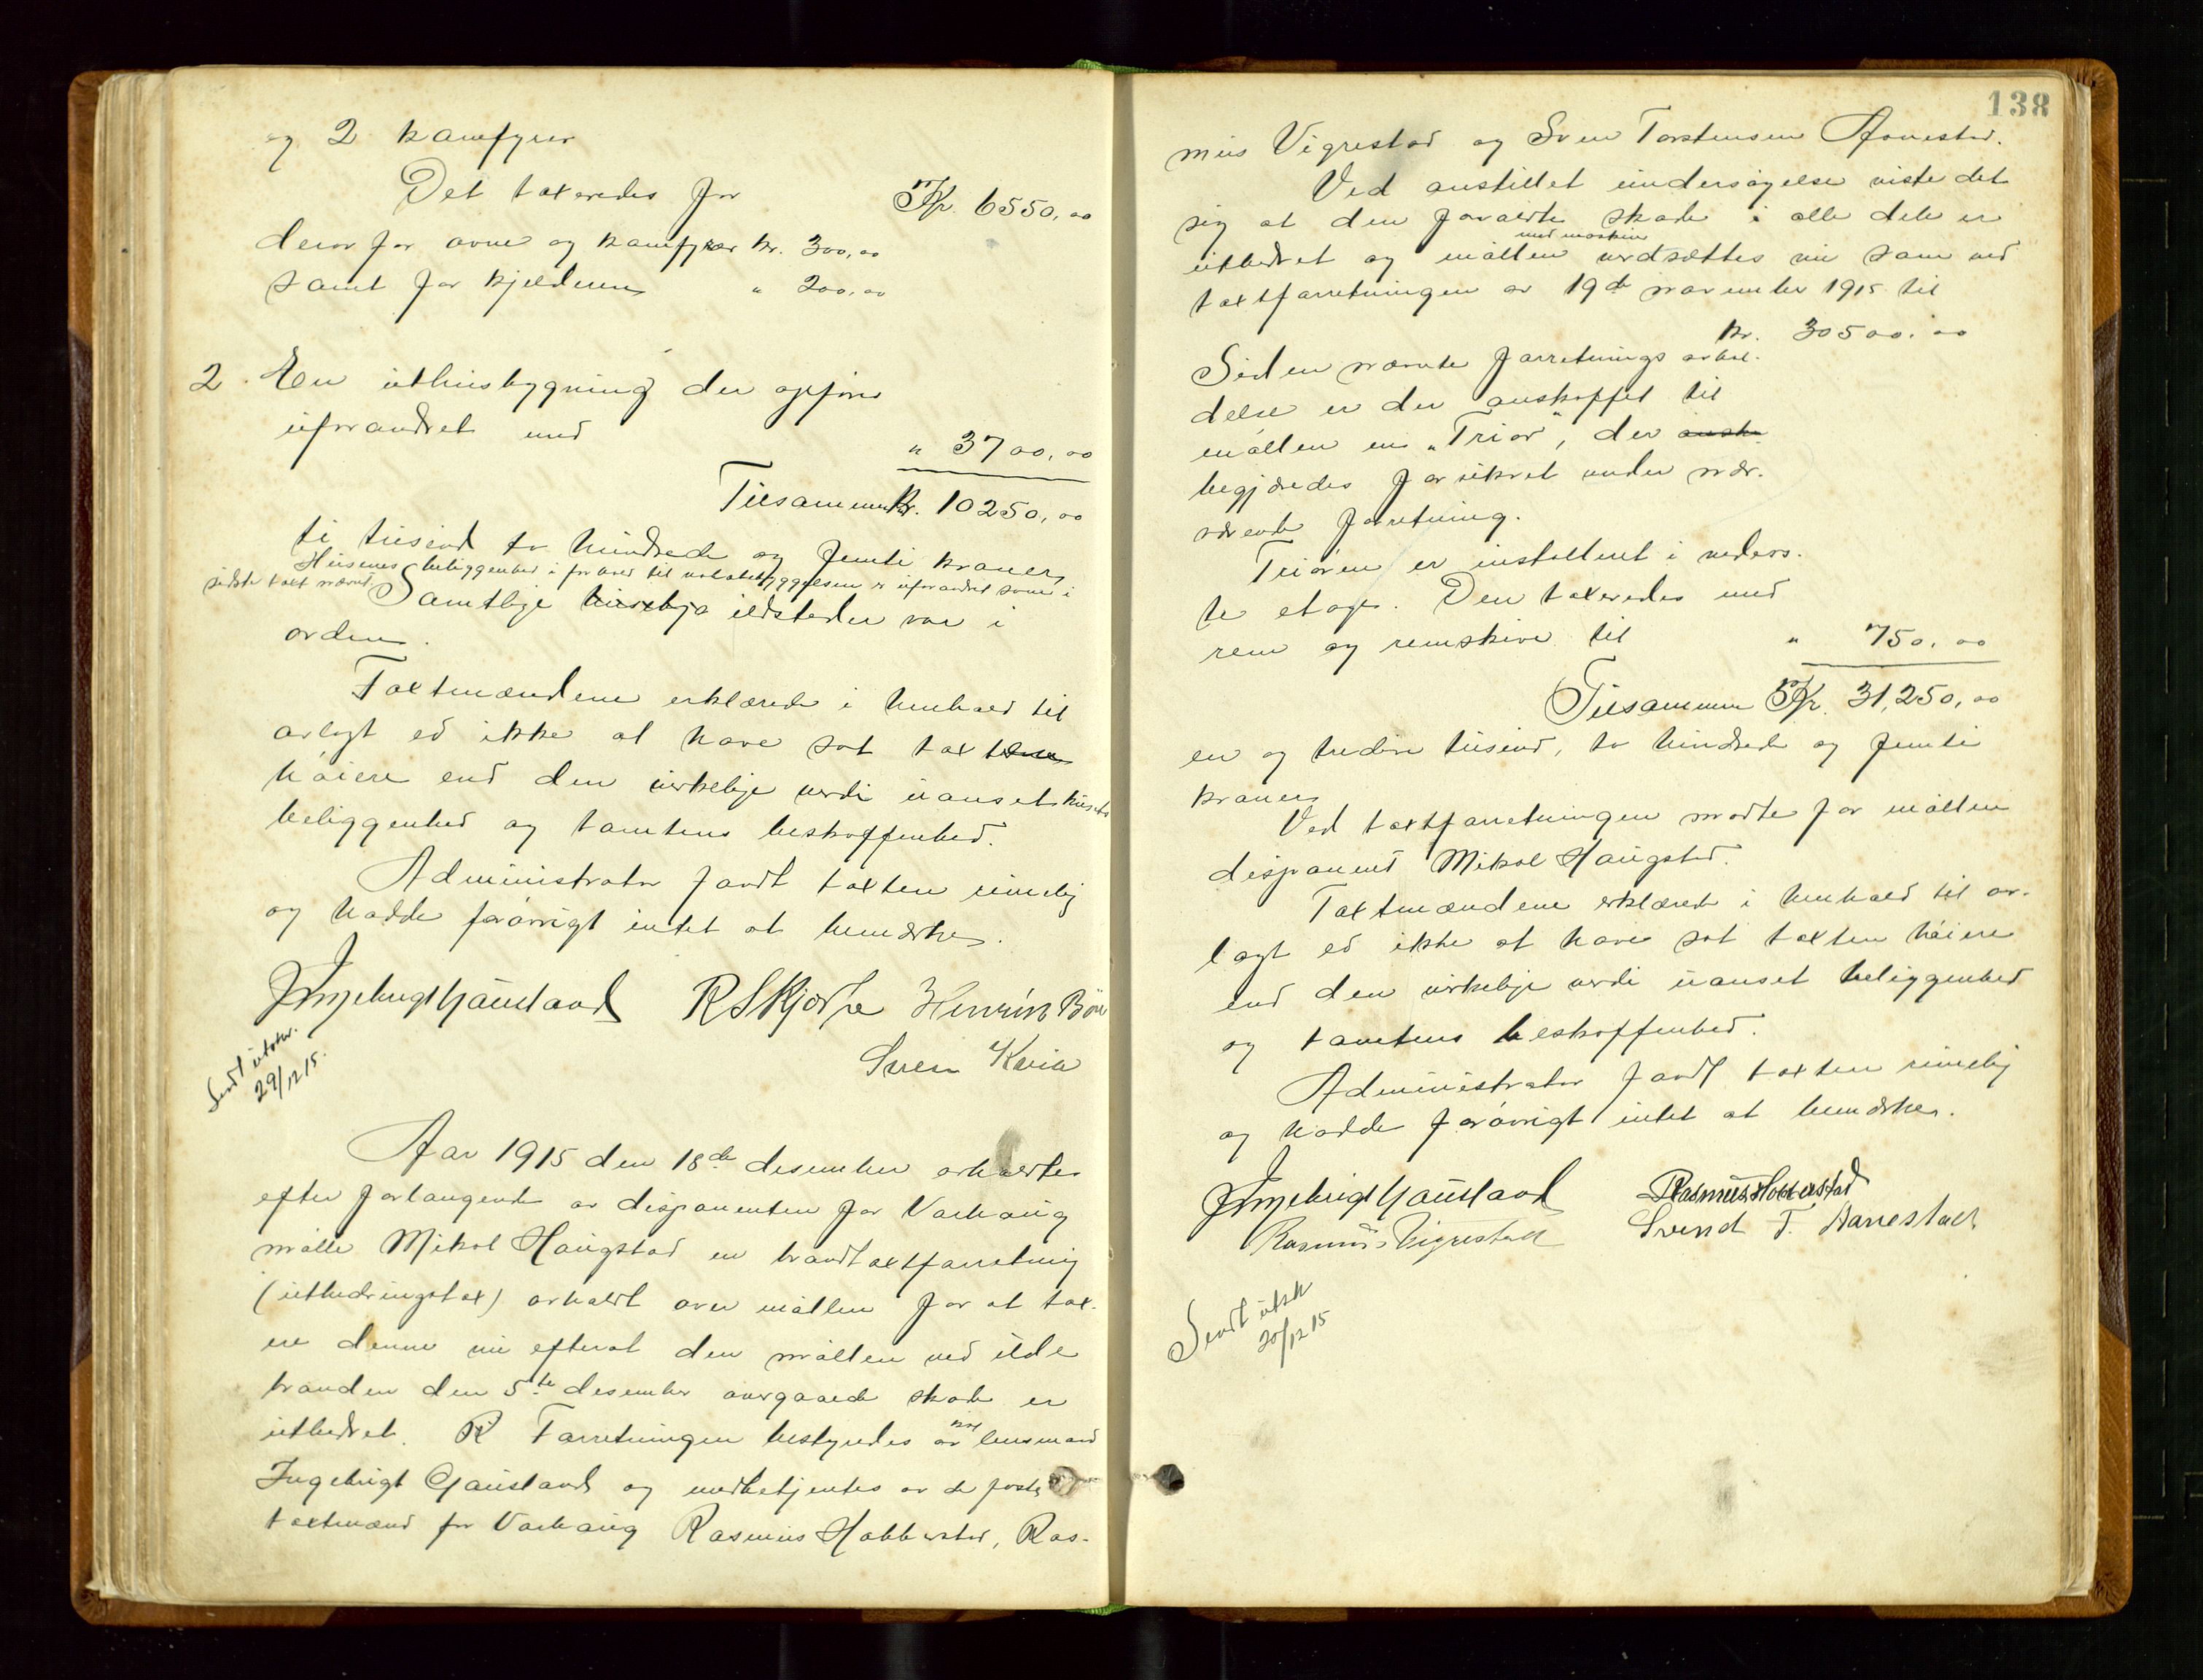 og 2 kamfyrer
Det taxeredes for Kr. 6550,00
derav for ovne og kamfyrer kr. 300,00
samt for kjelderen " 200,00
2. En uthusbygning der opføres
uforandret med " 3700,00
Tilsammen Kr. 10250,00
ti tusind to hundrede og femti kroner
Husenes beliggenhed i forhold til nabobebyggelsen er uforandret som i
sidste taxt nævnt
Samtlige ildsteder var i
orden.
Taxtmændene erklærede i henhold til
avlagt ed ikke at have sat taxten
høiere end den virkelige verdi uanset husets
beliggenhed og tomtens beskaffenhed.
Administrator fandt taxten rimelig
og hadde forøvrigt intet at bemerke.
Ingebrigt Gausland R S Kjosse Henrik Böe
Sven Kvia
Sendt utskr.
29/12 15.
Aar 1915 den 18de desember avholdtes
efter forlangende av disponenten for Varhaug
mølle Mikal Haugstad en brandtaxtforretning
(utbedringstax) avholdt over møllen for at tax-
ere denne nu efterat den møllen ved ilde
branden den 5te desember overgaaede skade er
utbedret. Forretningen bestyredes av lensmand
Ingebrigt Gausland og medbetjentes av de faste
taxtmænd for Varhaug Rasmus Hobberstad, Ras-
138
mus Vigrestad og Sven Torstensen Aanestad.
Ved anstillet undersøgelse viste det
sig at den forvoldte skade i alle dele er
med maskin
utbedret og møllen verdsættes nu som ved
taxtforretningen av 19de november 1915 til
kr. 30500,00
Siden nævnte forretnings avhol-
delse er der anskaffet til
møllen en "Triør", der
begjæredes forsikret under nær-
værende forretning.
Triøren er installeret i neders-
te etage. Den taxeredes med
rem og remskive til " 750,00
Tilsammen Kr. 31,250,00
en og tredive tusind, to hundrede og femti
kroner
Ved taxtforretningen mødte for møllen
disponent Mikal Haugstad.
Taxtmændene erklærede i henhold til av-
lagt ed ikke at have sat taxten høiere
end den virkelige verdi uanset beliggenhed
og tomtens beskaffenhed.
Administrator fandt taxten rimelig
og hadde forøvrigt intet at bemerke.
Ingebrigt Gausland Rasmus Hobberstad
Rasmus Vigrestad Svend T. Aanestad
Sendt utsk
20/12 15